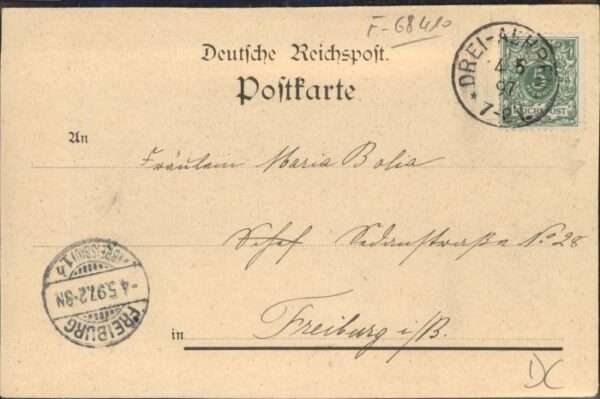 F-68410
Deutsche Reichspost.
Postkarte
DREI-
4 5
97
7-8
5
REICHSPOST
An
Fräulein Maria Bolia
Sedanstraße No 28
FREIBURG
-4.5.97.2-3N
in Freiburg i/B.